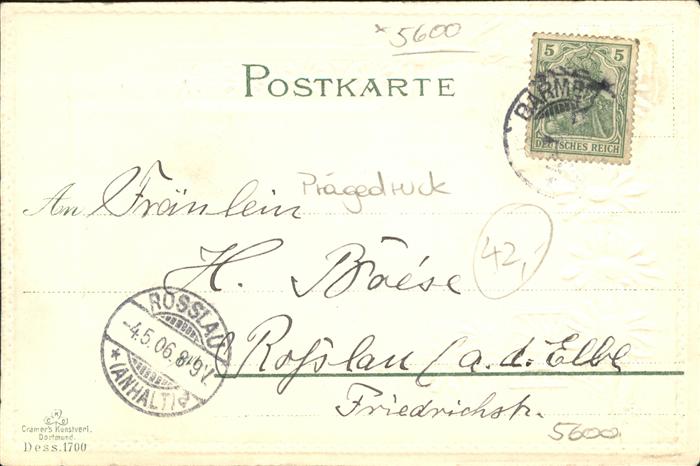 *5600
POSTKARTE
5 5
DEUTSCHES REICH
BARME
An Fräulein
Prägedruck
H. Boése
42,-
ROSSLAU
-4.5.06. 8-9V.
*(ANHALT)a
Roßlau (a. d. Elbe
Friedrichstr.
5600
Cramer's Kunstverl.
Dortmund.
Dess. 1700